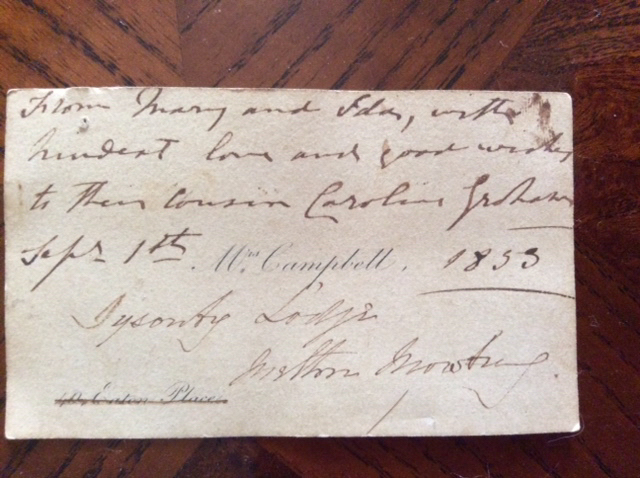 From Mary and Ida, with
kindest love and good wishes
to their cousin Caroline Graham
Sepr 1st Mrs. Campbell, 1853
Sysonby Lodge
Melton Mowbray.
Eaton Place